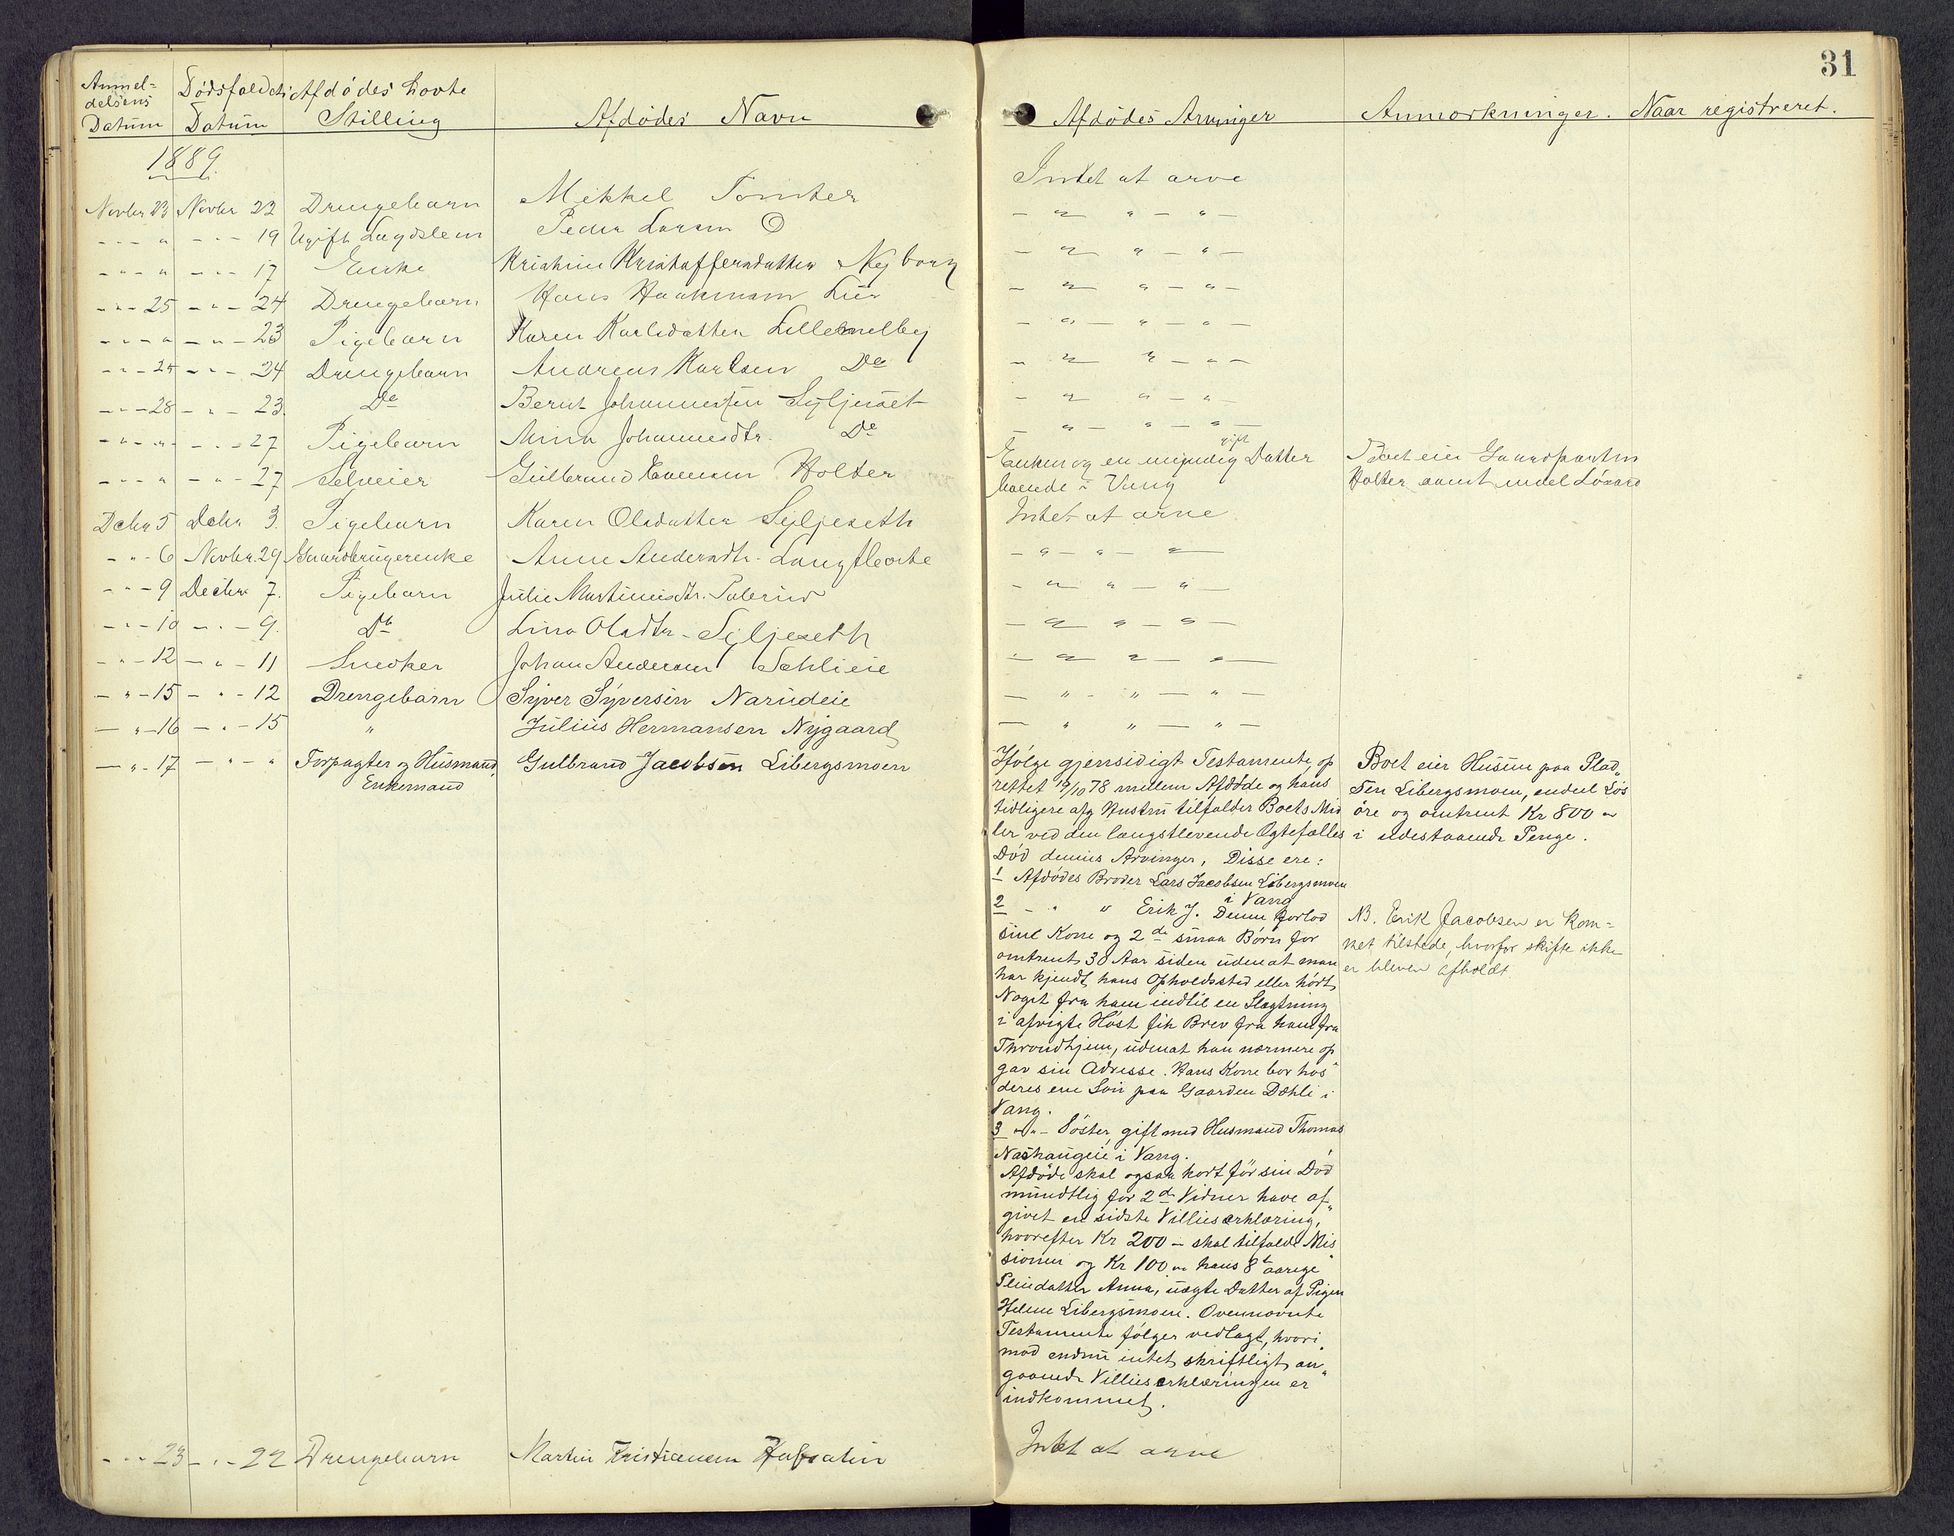 Anmel=
delsens
Datum
Dødsfaldets
Datum
Afdødes Livste
Stilling
Afdødes Navn
1889.
Novbr 23 Novbr 22 Drengebarn Mikkel Tomter
- - - " - - - 19 Ugift Lægdslem Peder Larsen
- - - " - - - 17 Enke Kristine Kristoffersdatter Nyborg
- " - 25 - " - 24 Drengebarn Hans Haakensen Lier
- - - " - " - 23 Pigebarn Karen Karlsdatter Lillemelby
- - - 25 - - - 24 Drengebarn Andreas Karlsen Do
- - - 28 - " - 23. Do Bernt Johannessen Syljeset
- " - " - - - - 27 Pigebarn Mina Johannesdtr. Do
- - - " - " - 27 Selveier Gulbrand Evensen Holter
Debr 5 Debr 3. Pigebarn Karen Olsdatter Syljeseth
- " - 6 Novbr. 29 Gaardbrugerenke Anne Andersdtr. Langtbortе
- " - 9 Decbr 7. Pigebarn Julie Martinusdtr.
- " - 10 - - - 9. Do Lina Olsdtr - Syljeseth
- " - 12 - " - 11 Snedker Johan Andersen Sæhlieie
- " - 15 - " - 12 Drengebarn Syver Syversen Narudeie
- " - 16 - " - 15 " Julius Hermansen Nygaard
- " - 17 - " - " Forpagter og Husmand, Gulbrand Jacobsen Libergsmoen
Enkemand
- - - 23 - " - 22 Drengebarn Martin Kristiansen
31
Afdødes Arvinger Anmærkninger. Naar registreret.
Intet at arve
- " - " - " -
- " - " - " -
- " - " - " -
- " - " - " -
- " - " - " -
- " - " - "
- " - " - " -
gift
Enken og en myndig Datter
boende i Vang
Intet at arve
- " - " - " -
- " - " - " -
- " - " - " -
- " - " - " -
- " - " - " -
- " " - " -
Ifølge gjensidigt Testamente, op
rettet 19/10 78 mellem Afdøde og hans
tidligere afg Hustru tilfalder Boets Mid
ler ved den længstlevende Ægtefælles
Død dennes Arvinger, Disse ere:
1 Afdødes Broder Lars Jacobsen Libergsmoen
i Vang
2 - " " Erik J. Denne forlod
sine Kone og 2de smaa Børn for
omtrent 30 Aar siden uden at man
har kjendt hans Opholdssted eller hørt
Noget fra ham indtil en Slægtning
i afvigte Høst fik Brev fra ham fra
Throndhjem, uden at han nærmere op
gav sin Adresse. Hans Kone bor hos
deres ene Søn paa Gaarden Dæhli i
Vang.
3 " " - Søster gift med Husmand Thomas
Nashaugeie i Vang.
Afdøde skal ogsaa kort før sin Død
mundtlig for 2de Vidner have af"
givet en sidste Villieserklæring,
hvorefter Kr 200 - skal tilfalde Mis
sionen og Kr 100 - hans 8 aarige
Pleiedatter Anna, uægte Datter af Pigen
Helene Libergsmoen. Ovennævnte
Testamente følger vedlagt, hvori"
mod endnu intet skriftligt an"
gaaende Villieserklæringen er
indkommet.
Intet at arve
Boet eier Gaardparten
Holter samt endel Løsøre
Boet eier Husene paa Plad"
sen Libergsmoen, endeel Løs
øre og omtrent Kr 800 -
i udestaaende Penge.
NB. Erik Jacobsen er kom=
met tilstede, hvorfor skifte ikke
er bleven afholdt